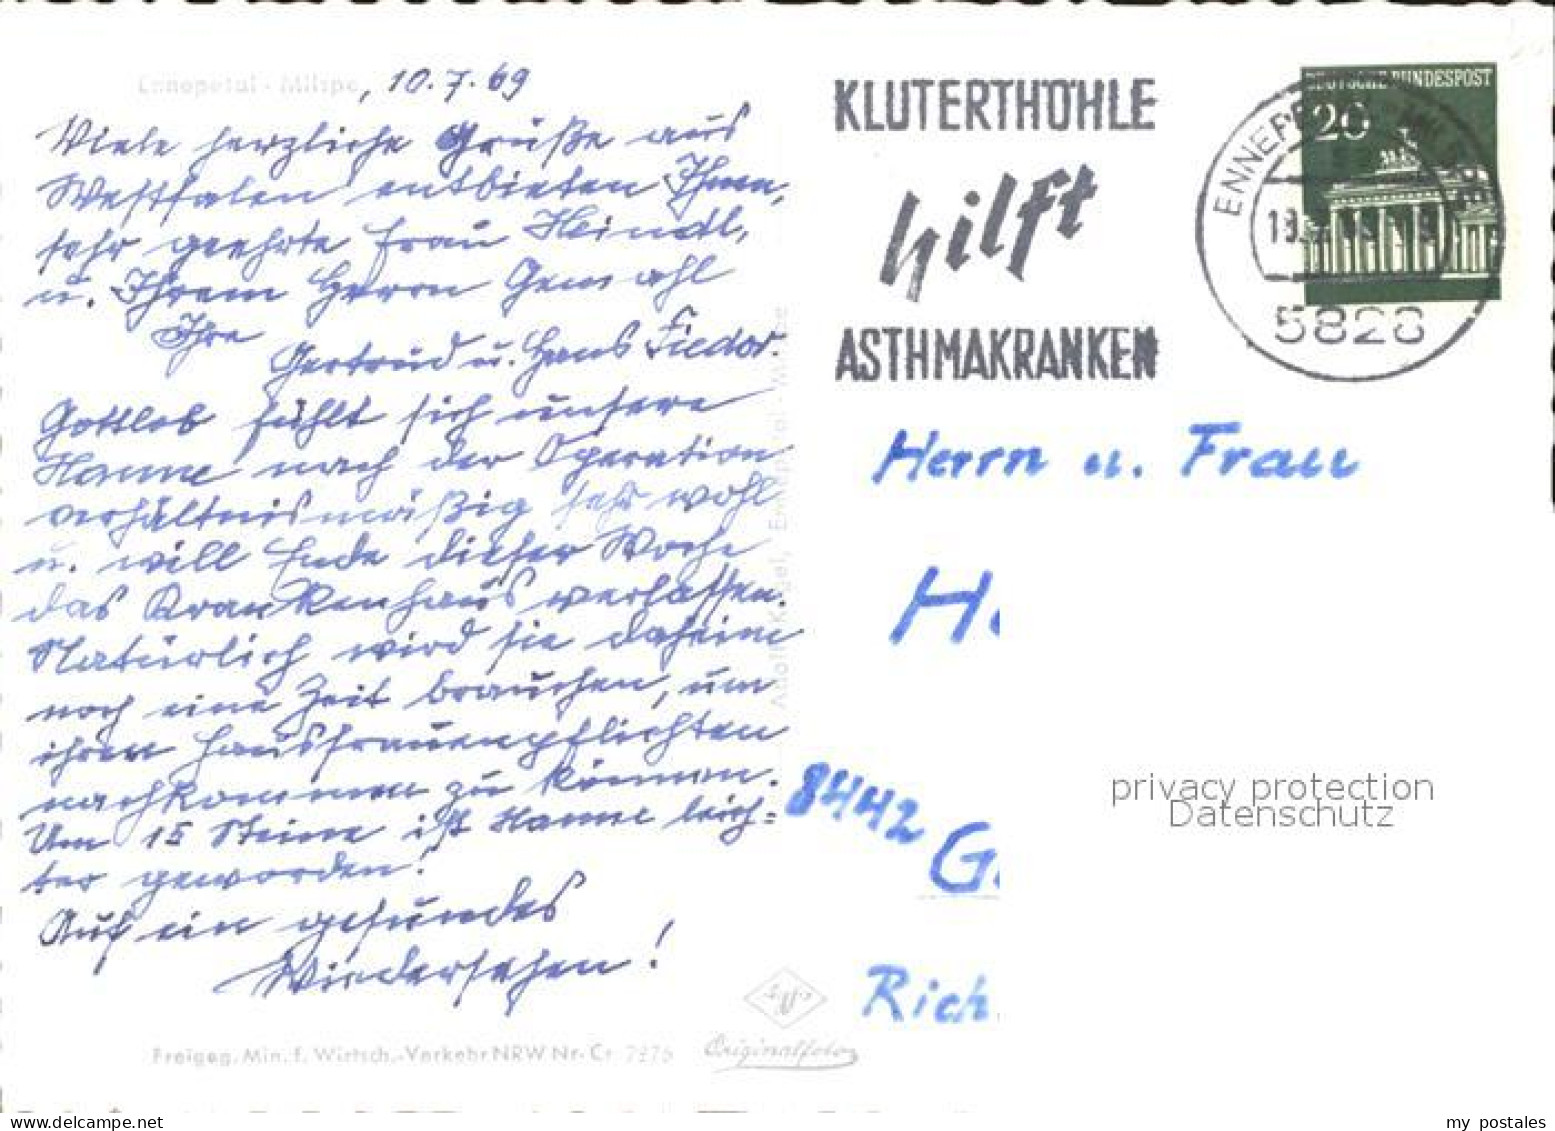 Ennepetal - Milspe, 10.7.69
Viele herzliche Grüße aus
Westfalen entbieten Ihnen,
sehr geehrte Frau Heindl,
u. Ihrem Herrn Gemahl
Ihre
Gertrud u. Hans Fiedor.
Gottlob fühlt sich unsere
Hanne nach der Operation
verhältnismäßig sehr wohl
u. will Ende dieser Woche
das Krankenhaus verlassen.
Natürlich wird sie daheim
noch eine Zeit brauchen, um
ihren Hausfrauenpflichten
nachkommen zu können.
Um 15 Steine ist Hanne leich=
ter geworden!
Auf ein gesundes
Wiedersehen!
Freigeg. Min. f. Wirtsch.-Verkehr NRW Nr. Cr 7276
Originalfoto
KLUTERTHÖHLE
hilft
ASTHMAKRANKEN
DEUTSCHE BUNDESPOST
20
5828
Herrn u. Frau
H
8442 G
Rich
privacy protection
Datenschutz
delcampe.net
my_postales